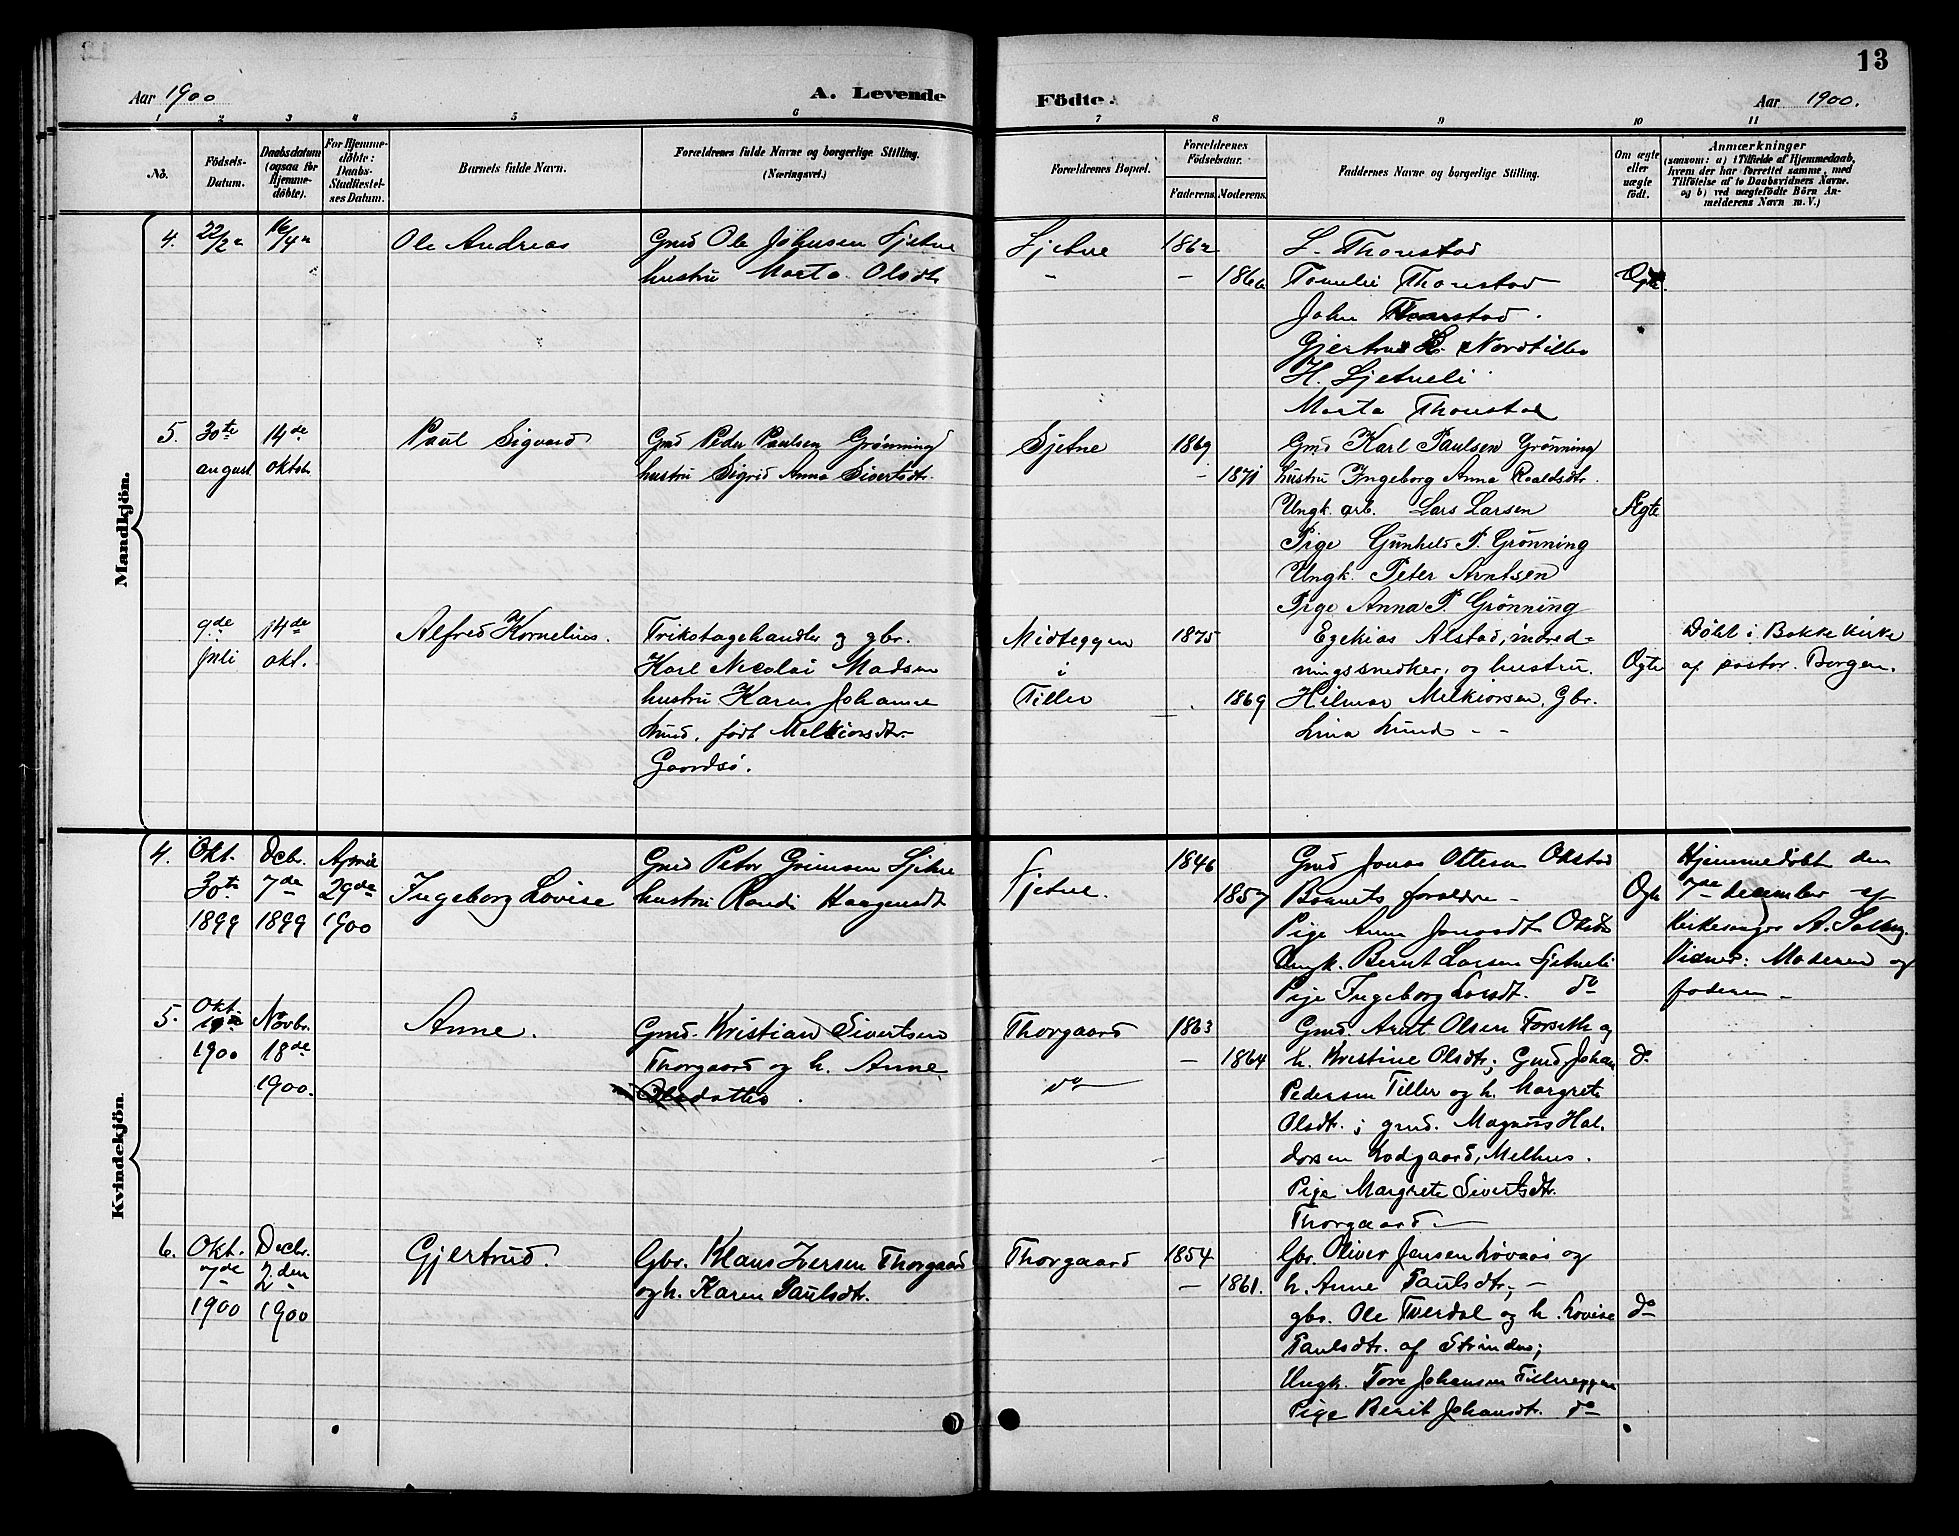 13
Aar 1900
A. Levende
Födte.
Aar 1900.
1 2 3 4 5 6 7 8 9 10 11
No.
Födsels-Datum.
Daabsdatum (ogsaa for Hjemme-döbte).
For Hjemme-döbte: Daabs-Stadfæstel-ses Datum.
Barnets fulde Navn.
Forældrenes fulde Navne og borgerlige Stilling. (Næringsvei.)
Forældrenes Bopæl.
Forældrenes Födselsaar.
Faderens. Moderens.
Faddernes Navne og borgerlige Stilling.
Om ægte eller uægte födt.
Anmærkninger
(saasom: a) i Tilfælde af Hjemmedaab, hvem der har forrettet samme, med Tilföielse af to Daabsvidners Navne. og b) ved uægtefödte Börn An-melderens Navn m. V.)
Mandkjön.
4. 22/2 16/4 Ole Andreas
Gmd Ole Johnsen Sjetne
hustru Marta Olsdtr
Sjetne 1862
- - 1866
L. Thonstad
Tomelie Thonstad
John Thonstad.
Gjertrud L. Nordtiller
H. Sjetneli
Marta Thonstad
Ægte
5. 30te august 14de oktobr. Paul Sigvard
Gmd Peder Paulsen Grønning
hustru Sigrid Anna Sivertsdtr.
Sjetne 1869
- 1871
Gmd Karl Paulsen Grønning
hustru Ingeborg Anna Roaldsdtr.
Ungk. arb. Lars Larsen
Pige Gunhild P. Grønning
Ungk. Peter Arntsen
Pige Anna P. Grønning
Ægte
9de Juli 14de okt. Alfred Kornelius.
Trikotagehandler og gbr.
Karl Nicolai Madsen
hustru Karen Johanne
Lund, født Melkiorsdtr.
Gaardsø.
Midteggen
i
Tiller
1875
1869
Ezekias Alstad, indred-
ningssnedker, og hustru.
Hilmar Melkiorsen, Gbr.
Lina Lund - -
Ægte
Døbt i Bakke Kirke
af pastor Borgen.
Kvindekjön.
4. Okt. 30te 1899 Decbr. 7de 1899 April 29de 1900 Ingeborg Lovise
Gmd Peter Grimsen Sjetne
hustru Randi Haagensdt
Sjetne. 1846
1857
Gmd Jonas Ottesen Okstad
Barnets forældre -
Pige Anne Jonasdt Okstad
Ungk. Bernt Larsen Sjetneli
Pige Ingeborg Larsdt. do
Ægte
Hjemmedøbt den
7de december af
Kirkesanger A. Solberg.
Vidner: Moderen og
faderen -
5. Okt. 19de 1900 Novbr. 18de 1900. Anne.
Gmd. Kristian Sivertsen
Thorgaard og h. Anne
Olsdatter.
Thorgaard 1863
do - 1864
Gmd. Arnt Olsen Forseth og
h. Kristine Olsdtr.; Gmd Johan
Pedersen Tiller og h. Margrete
Olsdtr.; gmd. Magnus Hal-
dorsen Lodgaard, Melhus.
Pige Margrete Sivertsdtr.
Thorgaard -
do
6. Okt. 7de 1900 Decbr. 2den 1900 Gjertrud.
Gbr. Klaus Iversen Thorgaard
og h. Karen Paulsdtr.
Thorgaard 1854
- 1861.
Gbr. Oliver Jensen Løvaas og
h. Anne Paulsdtr; -
gbr. Ole Tverdal og h. Lovise
Paulsdtr. af Strinden;
Ungk. Tore Johansen Tillereggen
Pige Berit Johansdtr. do
do